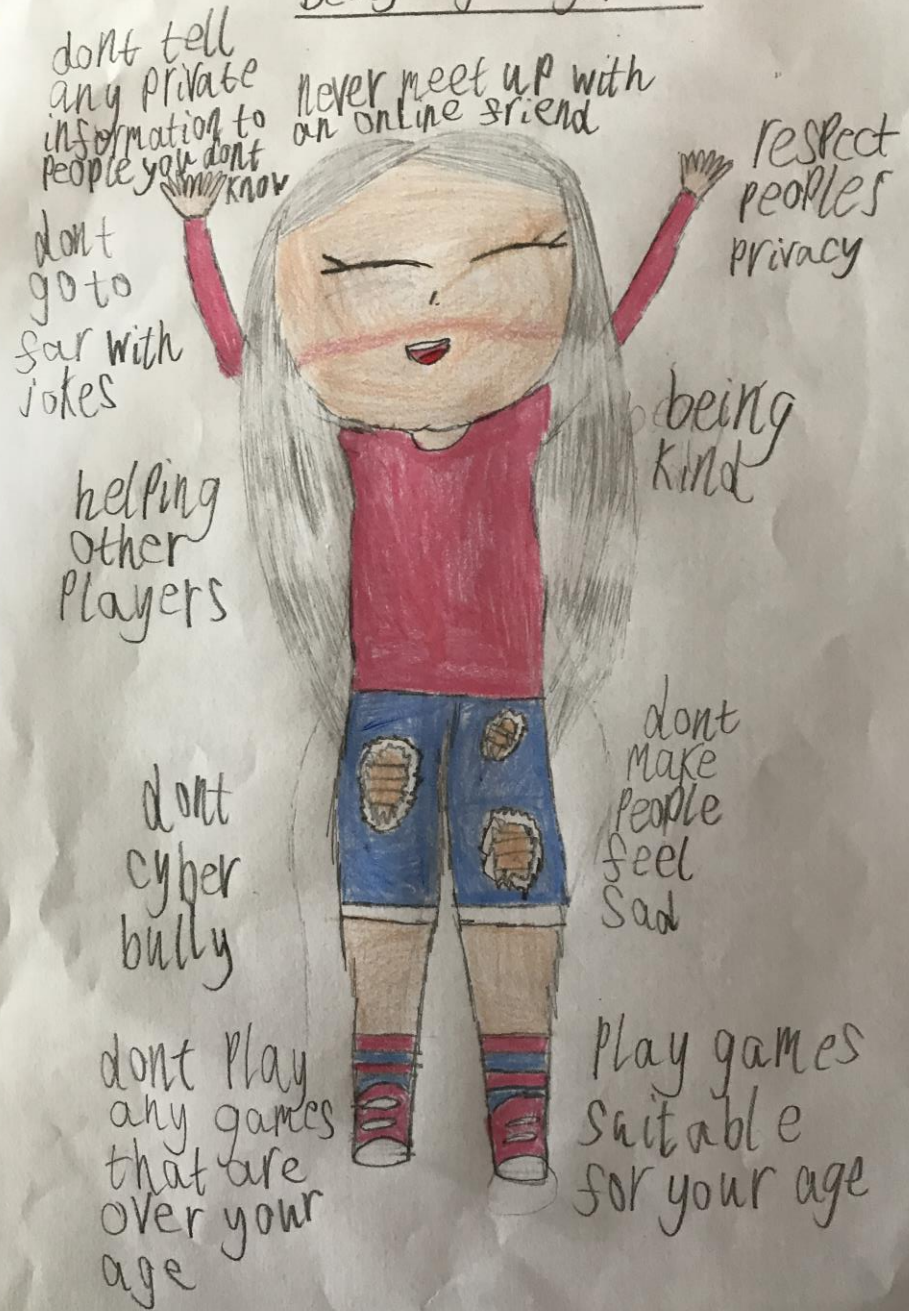 dont tell
any private
information to
people you dont
know
never meet up with
an online friend
respect
peoples
privacy
dont
go to
far with
jokes
being
kind
helping
other
players
dont
make
people
feel
sad
dont
cyber
bully
dont play
any games
that are
over your
age
play games
suitable
for your age